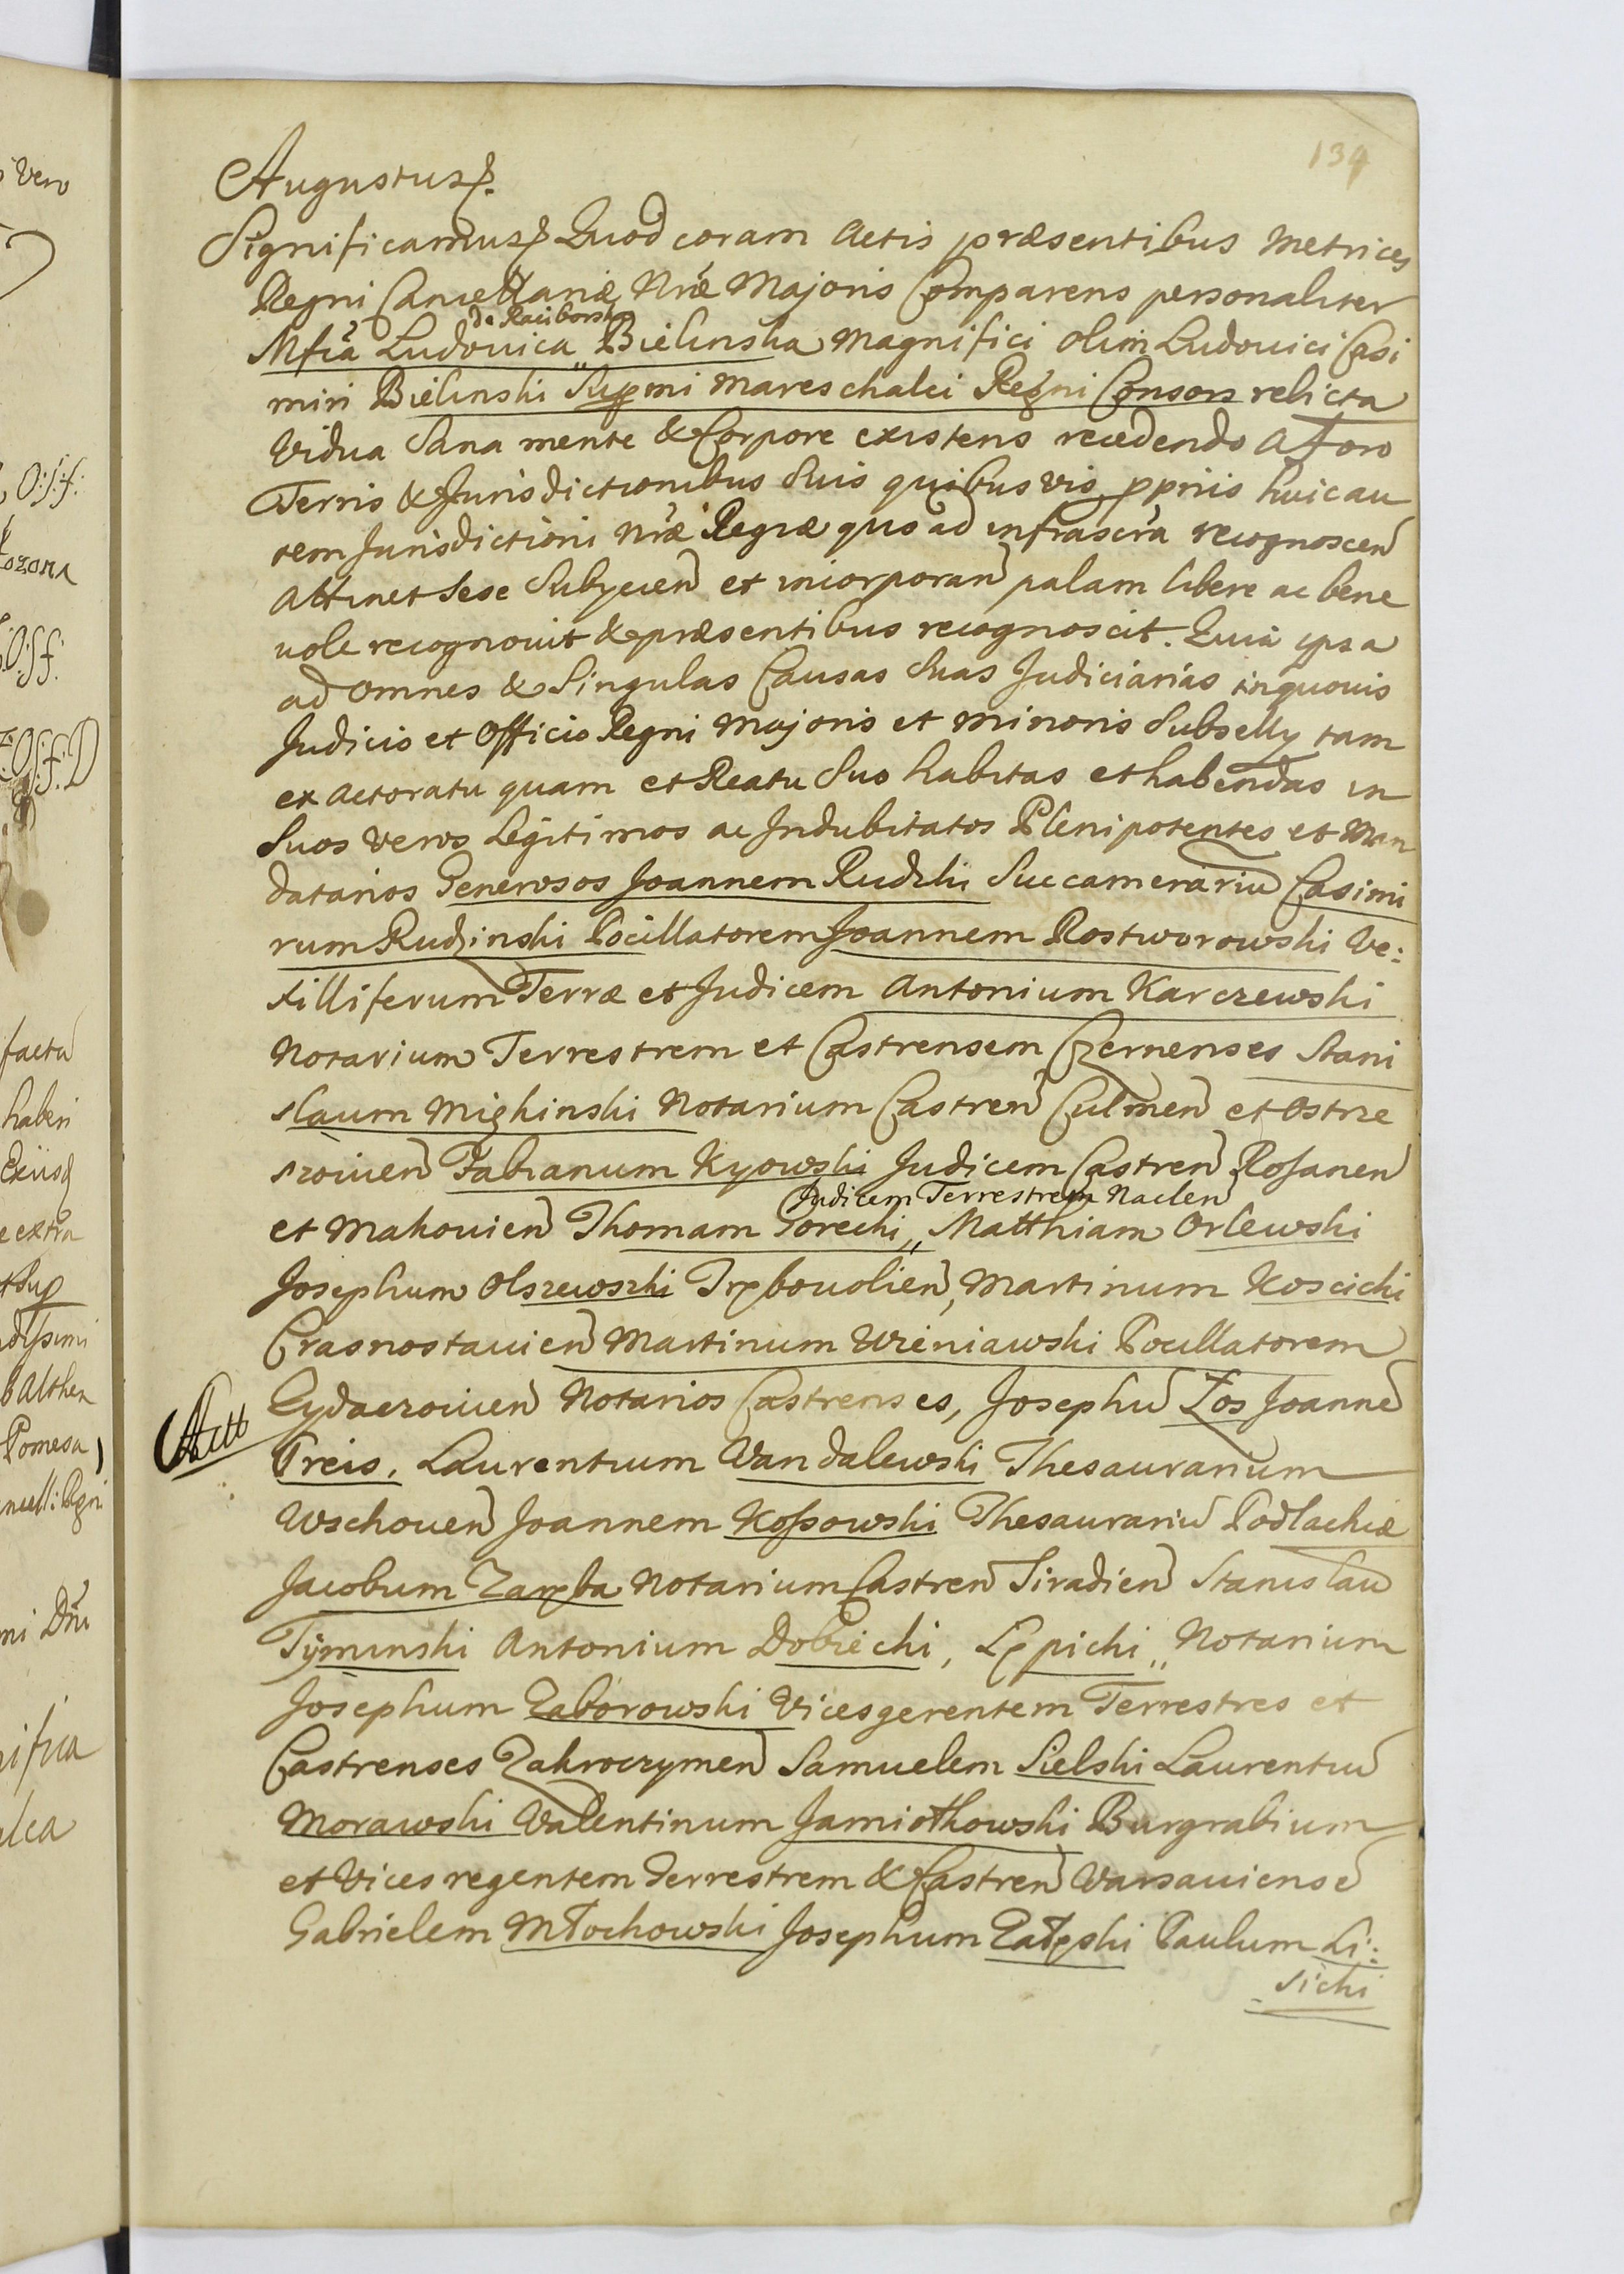 134
Augustus
Significamus Quod coram Actis præsentibus Metrices
Regni Cancellariæ Nræ Majoris Comparens personaliter
de Raciborsko
Mfca Ludovica,, Bielinska Magnifici olim Ludovici Casi
miri Bielinski Supremi Mareschalci Regni Consors relicta
Vidua Sana mente & Corpore existens recedendo a Foro
Terris & Jurisdictionibus Suis quibusvis ppriis huic au
tem Jurisdictioni Nræ Regiæ quo ad infrascra recognoscen
Attinet sese Subjicien et incorporan palam libere ac bene
vole recognovit & præsentibus recognoscit. Quia ipsa
ad omnes & Singulas Causas Suas Judiciarias in quovis
Judicio et Officio Regni Majoris et Minoris Subselly tam
ex Actoratu quam et Reatu Suo habitas et habendas in
Suos veros Legitimos ac Indubitatos Plenipotentes et Man
datarios Generosos Joannem Rudzki Succamerariu Casimi
rum Rudzinski Pocillatorem Joannem Rostworowski Ve:
xilliferum Terræ et Judicem Antonium Karczewski
Notarium Terrestrem et Castrensem Czernenses Stani
slaum Mighinski Notarium Castren Culmen et Ostrze
szovien Fabianum Kyowski Judicem Castren Rosanen
Judicem Terrestrem Naclen
et Makovien Thomam Gorecki,, Matthiam Orlewski
Josephum Olszewski Trębovolien, Martinum Koscicki
Crasnostavien Martinum Wieniawski Pocillatorem
Zydaczovien Notarios Castrenses, Josephu Łos Joanne
Preis, Laurentium Wandalewski Thesaurarium
Wschoven Joannem Kossowski Thesaurariu Podlachiæ
Jacobum Zaręba Notarium Castren Siradien Stanislau
Tyminski Antonium Dobiecki, Lępicki,, Notarium
Josephum Zaborowski Vicesgerentem Terrestres et
Castrenses Zakroczymen Samuelem Sielski Laurentiu
Morawski Valentinum Jamiołkowski Burgrabium
et Vices regentem Terrestrem & Castren Varsaviense
Gabrielem Młochowski Josephum Załęski Paulum Li:
sicki